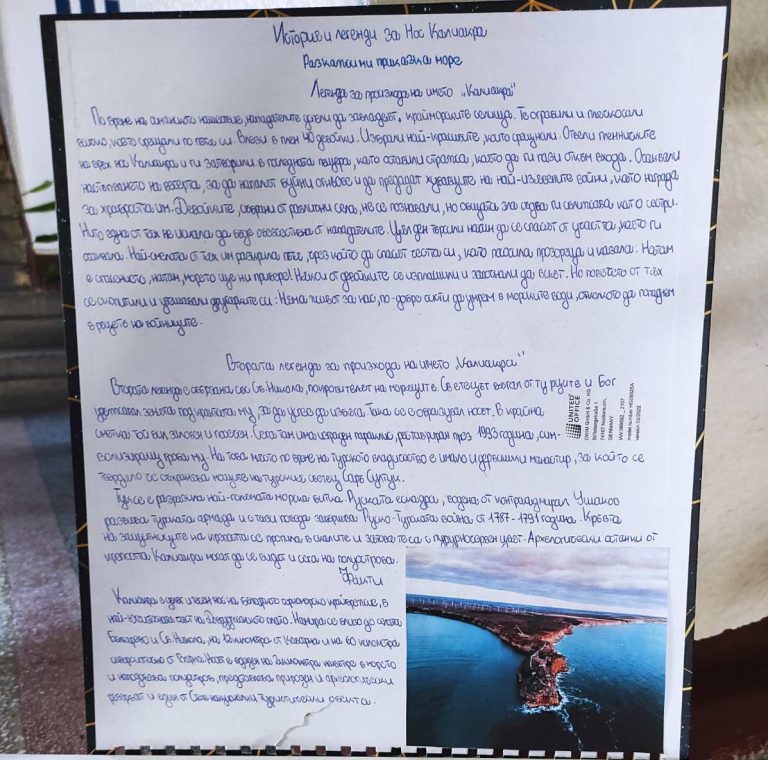 История и легенди за Нос Калиакра
Разкажи ми приказка море
Легенда за произхода на името „Калиакра"
По време на османското нашествие, нападателите успели да завладеят крайморските селища. Те ограбили и опоскали
всичко, което срещали по пътя си. Влезли в плен 40 девойки. Избрали най-красивите, които срещнали. Отвели пленничките
на връх нос Калиакра и ги затворили в последната пещера, като оставили стража, която да ги пази откъм входа. Очаквали
настъпването на вечерта, за да напалят буйни огньове и да предадат хубавиците на най-изявените войни, като награда
за храбростта им. Девойките, събрани от различни села, не се познавали, но общата зла съдба ги сплотявала като сестри.
Нито една от тях не искала да бъде обезчестена от нападателите. Цял ден търсили начин да се спасят от участта, която ги
очаквала. Най-смелата от тях им разкрила пътя, чрез който да спасят честта си, като посочила прозореца и казала: Натам
е спасението, натам, морето ще ни прибере! Някои от девойките се изплашили и започнали да вият. Но повечето от тях
се окопитили и утешавали другарките си: Няма живот за нас, по-добре да умрем в морските води, отколкото да попаднем
в ръцете на войниците.
Втората легенда за произхода на името „Калиакра"
Втората легенда е свързана със Св. Никола, покровителят на моряците. Светецът бягал от турците и Бог
удължавал земята под краката му, за да успее да избяга. Така се е образувал носът. В крайна
сметка той бил заловен и посечен. Сега там има изграден параклис, реставриран през 1993 година, сим-
волизиращ гроба му. На това място по време на турското владичество е имало и дервишки манастир, за който се
твърдяло се съхранява мощите на турския светец Саръ Султук.
Тук се е разразила най-голямата морска битка. Руската ескадра, водена от контраадмирал Ушаков
разбива турската армада и с тази победа завършва Руско-Турската война от 1787-1791 година. Кръвта
на защитниците на крепостта се пропила в скалите и затова те са с пурпурночервен цвят. Археологически останки от
крепостта Калиакра могат да се видят и сега на полуострова.
UNITED OFFICE
OWIM GmbH & Co. KG
Stiftsbergstraße 1
74167 Neckarsulm,
GERMANY
Факти
Калиакра е дълъг и тесен нос на българското черноморско крайбрежие, в
най-югоизточната част на Добруджанското плато. Намира се близо до селата
Българево и Св. Никола, на 12 километра от Каварна и на 60 километра
североизточно от Варна. Носът е вдаден на 2 километра навътре в морето
и наподобява полуостров, представлява природен и археологически
резерват и един от Стоте национални туристически обекта.